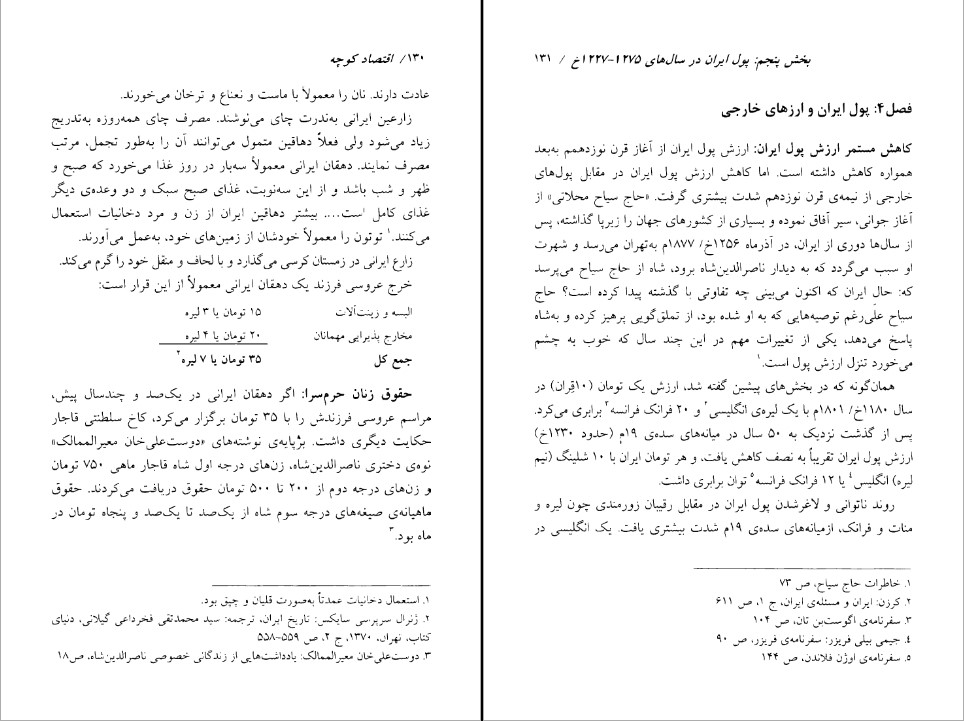 ۱۳۰/ اقتصاد کوچه
عادت دارند. نان را معمولاً با ماست و نعناع و ترخان می‌خورند.
زارعین ایرانی به‌ندرت چای می‌نوشند. مصرف چای همه‌روزه به‌تدریج
زیاد می‌شود ولی فعلاً دهاقین متمول می‌توانند آن را به‌طور تجمل، مرتب
مصرف نمایند. دهقان ایرانی معمولاً سه‌بار در روز غذا می‌خورد که صبح و
ظهر و شب باشد و از این سه‌نوبت، غذای صبح سبک و دو وعده‌ی دیگر
غذای کامل است.... بیشتر دهاقین ایران از زن و مرد دخانیات استعمال
می‌کنند.۱ توتون را معمولاً خودشان از زمین‌های خود، به‌عمل می‌آورند.
زارع ایرانی در زمستان کرسی می‌گذارد و با لحاف و منقل خود را گرم می‌کند.
خرج عروسی فرزند یک دهقان ایرانی معمولاً از این قرار است:
البسه و زینت‌آلات ۱۵ تومان یا ۳ لیره
مخارج پذیرایی مهمانان ۲۰ تومان یا ۴ لیره
جمع کل ۳۵ تومان یا ۷ لیره۲
حقوق زنان حرم‌سرا: اگر دهقان ایرانی در یک‌صد و چندسال پیش،
مراسم عروسی فرزندش را با ۳۵ تومان برگزار می‌کرد، کاخ سلطنتی قاجار
حکایت دیگری داشت. برپایه‌ی نوشته‌های «دوست‌علی‌خان معیرالممالک»
نوه‌ی دختری ناصرالدین‌شاه، زن‌های درجه اول شاه قاجار ماهی ۷۵۰ تومان
و زن‌های درجه دوم از ۲۰۰ تا ۵۰۰ تومان حقوق دریافت می‌کردند. حقوق
ماهیانه‌ی صیغه‌های درجه سوم شاه از یک‌صد تا یک‌صد و پنجاه تومان در
ماه بود.۳
۱. استعمال دخانیات عمدتاً به‌صورت قلیان و چپق بود.
۲. ژنرال سرپرسی سایکس: تاریخ ایران، ترجمه: سید محمدتقی فخرداعی گیلانی، دنیای
کتاب، تهران، ۱۳۷۰، ج ۲، ص ۵۵۹-۵۵۸
۳. دوست‌علی‌خان معیرالممالک: یادداشت‌هایی از زندگانی خصوصی ناصرالدین‌شاه، ص۱۸
بخش پنجم: پول ایران در سال‌های ۱۲۷۵-۱۲۲۷خ / ۱۳۱
فصل۴: پول ایران و ارزهای خارجی
کاهش مستمر ارزش پول ایران: ارزش پول ایران از آغاز قرن نوزدهم به‌بعد
همواره کاهش داشته است. اما کاهش ارزش پول ایران در مقابل پول‌های
خارجی از نیمه‌ی قرن نوزدهم شدت بیشتری گرفت. «حاج سیاح محلاتی» از
آغاز جوانی، سیر آفاق نموده و بسیاری از کشورهای جهان را زیرپا گذاشته، پس
از سال‌ها دوری از ایران، در آذرماه ۱۲۵۶خ/ ۱۸۷۷م به‌تهران می‌رسد و شهرت
او سبب می‌گردد که به دیدار ناصرالدین‌شاه برود، شاه از حاج سیاح می‌پرسد
که: حال ایران که اکنون می‌بینی چه تفاوتی با گذشته پیدا کرده است؟ حاج
سیاح علی‌رغم توصیه‌هایی که به او شده بود، از تملق‌گویی پرهیز کرده و به‌شاه
پاسخ می‌دهد، یکی از تغییرات مهم در این چند سال که خوب به چشم
می‌خورد تنزل ارزش پول است.۱
همان‌گونه که در بخش‌های پیشین گفته شد، ارزش یک تومان (۱۰قِران) در
سال ۱۱۸۰خ/ ۱۸۰۱م با یک لیره‌ی انگلیسی۲ و ۲۰ فرانک فرانسه۳ برابری می‌کرد.
پس از گذشت نزدیک به ۵۰ سال در میانه‌های سده‌ی ۱۹م (حدود ۱۲۳۰خ)
ارزش پول ایران تقریباً به نصف کاهش یافت، و هر تومان ایران با ۱۰ شلینگ (نیم
لیره) انگلیس۴ یا ۱۲ فرانک فرانسه۵ توان برابری داشت.
روند ناتوانی و لاغرشدن پول ایران در مقابل رقیبان زورمندی چون لیره و
منات و فرانک، ازمیانه‌های سده‌ی ۱۹م شدت بیشتری یافت. یک انگلیسی در
۱. خاطرات حاج سیاح، ص ۷۳
۲. کرزن: ایران و مسئله‌ی ایران، ج ۱، ص ۶۱۱
۳. سفرنامه‌ی اگوست‌بن تان، ص ۱۰۴
۴. جیمی بیلی فریزر: سفرنامه‌ی فریزر، ص ۹۰
۵. سفرنامه‌ی اوژن فلاندن، ص ۱۴۴